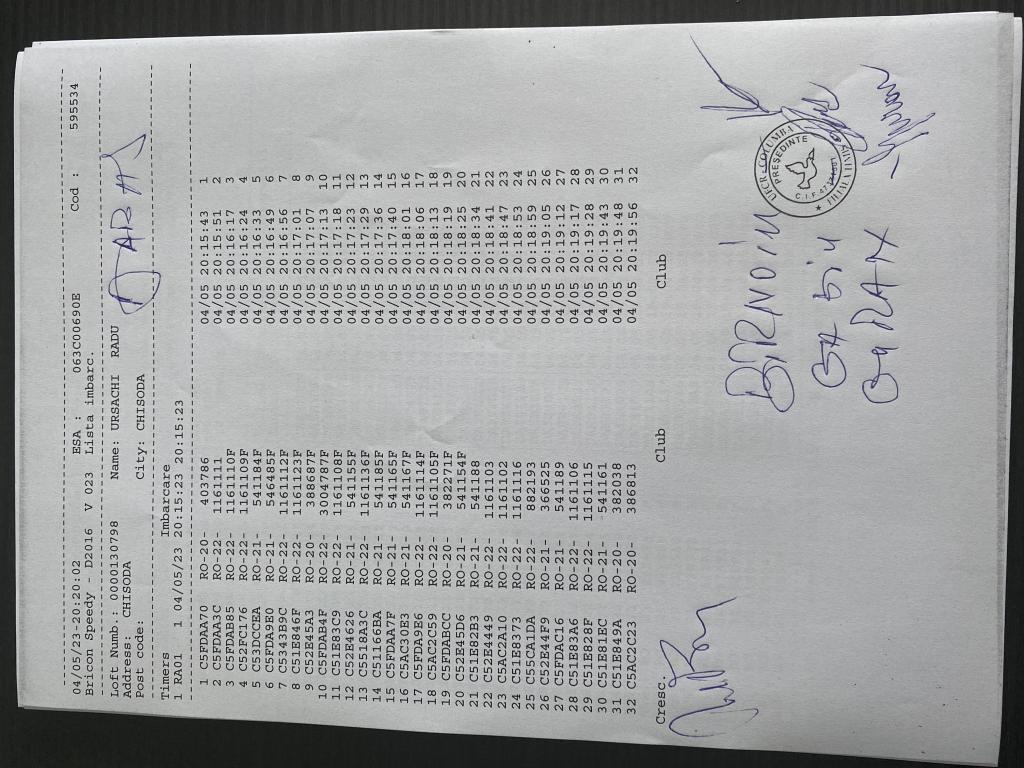 04/05/23-20:20:02 ESA : 063C00690E Cod : 595534
Bricon Speedy - D2016 V 023 Lista imbarc.
Loft Numb.: 0000130798 Name: URSACHI RADU
Address: CHISODA
Post code: City: CHISODA
Timers Imbarcare
1 RA01 1 04/05/23 20:15:23 20:15:23
1 C5FDAA70 RO-20- 403786 04/05 20:15:43 1
2 C5FDAA3C RO-22- 1161111 04/05 20:15:51 2
3 C5FDAB85 RO-22- 1161110F 04/05 20:16:17 3
4 C52FC176 RO-22- 1161109F 04/05 20:16:24 4
5 C53DCCEA RO-21- 541184F 04/05 20:16:33 5
6 C5FDA9E0 RO-21- 546485F 04/05 20:16:49 6
7 C5343B9C RO-22- 1161112F 04/05 20:16:56 7
8 C51E846F RO-22- 1161123F 04/05 20:17:01 8
9 C52E45A3 RO-20- 388687F 04/05 20:17:07 9
10 C5FDAB4F RO-22- 3004787F 04/05 20:17:13 10
11 C51E83C9 RO-22- 1161108F 04/05 20:17:18 11
12 C52E4626 RO-21- 541155F 04/05 20:17:23 12
13 C551BA3C RO-22- 1161136F 04/05 20:17:29 13
14 C51166BA RO-21- 541185F 04/05 20:17:36 14
15 C5FDAA7F RO-21- 541165F 04/05 20:17:40 15
16 C5AC30E3 RO-21- 541167F 04/05 20:18:01 16
17 C5FDA9E6 RO-22- 1161114F 04/05 20:18:06 17
18 C5AC2C59 RO-22- 1161105F 04/05 20:18:13 18
19 C5FDABCC RO-20- 382271F 04/05 20:18:19 19
20 C52E45D6 RO-21- 541154F 04/05 20:18:25 20
21 C51E82B3 RO-21- 541188 04/05 20:18:34 21
22 C52E4449 RO-22- 1161103 04/05 20:18:41 22
23 C5AC2A10 RO-22- 1161102 04/05 20:18:47 23
24 C51E8373 RO-22- 1161116 04/05 20:18:53 24
25 C55CA1DA RO-22- 882193 04/05 20:18:59 25
26 C52E44F9 RO-21- 366525 04/05 20:19:05 26
27 C5FDAC16 RO-21- 541189 04/05 20:19:12 27
28 C51E83A6 RO-22- 1161106 04/05 20:19:17 28
29 C51E828F RO-22- 1161115 04/05 20:19:28 29
30 C51E81EC RO-21- 541161 04/05 20:19:43 30
31 C51E849A RO-20- 382038 04/05 20:19:48 31
32 C5AC2C23 RO-20- 386813 04/05 20:19:56 32
Cresc. Club Club
UFCR-COLUMBA
PRESEDINTE